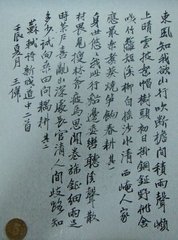 東風知我欲山行吹斷檐間積雨聲嶺
上晴雲披絮帽樹頭初日掛銅鉦野桃含
笑竹籬短溪柳自搖沙水清西崦人家
應最樂煮葵燒筍餉春耕其二
身世悠悠我此行溪邊委轡聽溪聲散
材畏見搜林斧疲馬思聞卷旆鉦細雨足
時茶戶喜亂山深處長官清人間歧路知
多少試向桑田問耦耕
蘇軾詩新城道中二首
夏月王偉